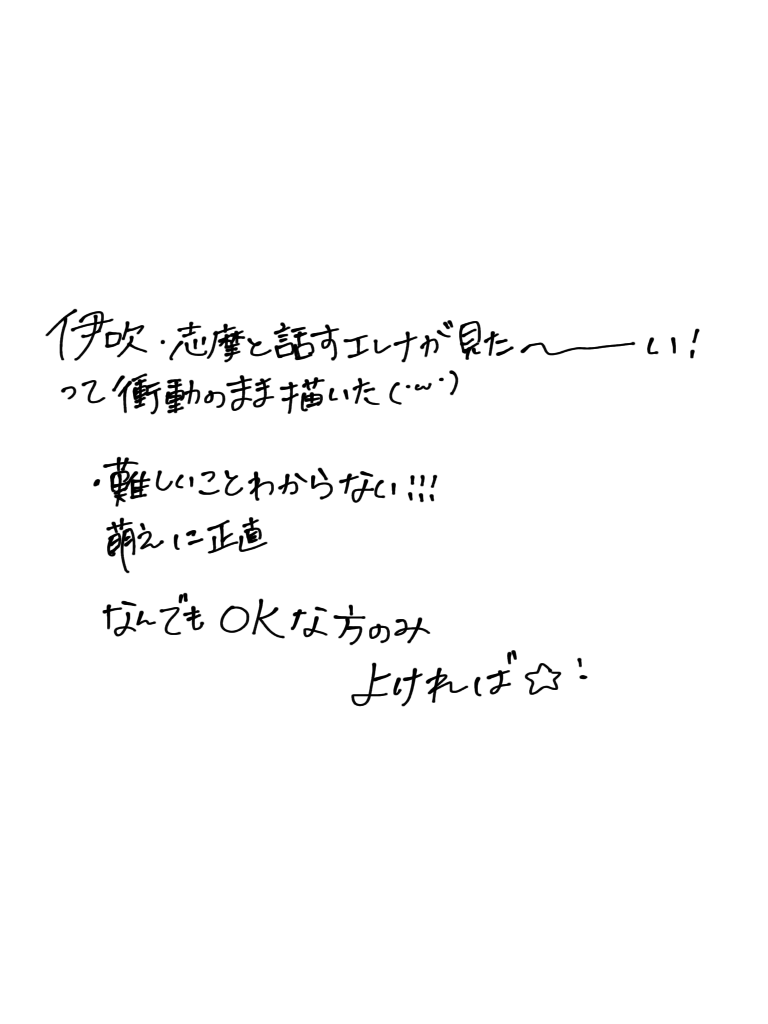 伊吹・志摩と話すエレナが見た〜ーい!
って衝動のまま描いた(･ω･)
・難しいことわからない!!!
萌えに正直
なんでもOKな方のみ
よければ☆: